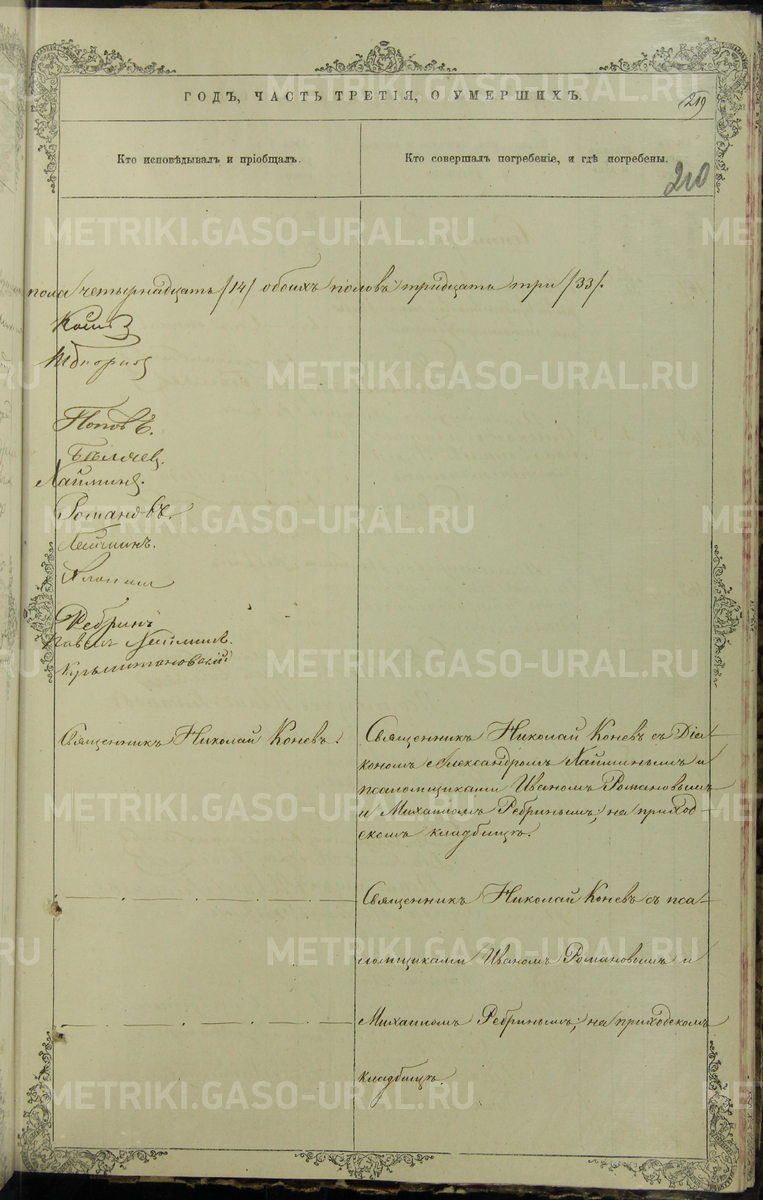 ГОДЪ, ЧАСТЬ ТРЕТІЯ, О УМЕРШИХЪ.
219
Кто исповѣдывалъ и пріобщалъ.
Кто совершалъ погребеніе, и гдѣ погребены.
210
пола четырнадцать /14/ обоихъ половъ тридцать три /33/.
Поповъ.
Бѣляевъ
Лайминъ.
Романовъ.
Лайминъ.
Ребринъ
Крыжановскій
Священникъ Николай Коневъ.
Священникъ Николай Коневъ съ Діа-
кономъ Александромъ Лайминымъ и
псаломщиками Иваномъ Романовымъ
и Михаиломъ Ребринымъ; на приход-
скомъ кладбищѣ.
Священникъ Николай Коневъ съ пса-
ломщиками Иваномъ Романовымъ и
Михаиломъ Ребринымъ; на приходскомъ
кладбищѣ.
METRIKI.GASO-URAL.RU